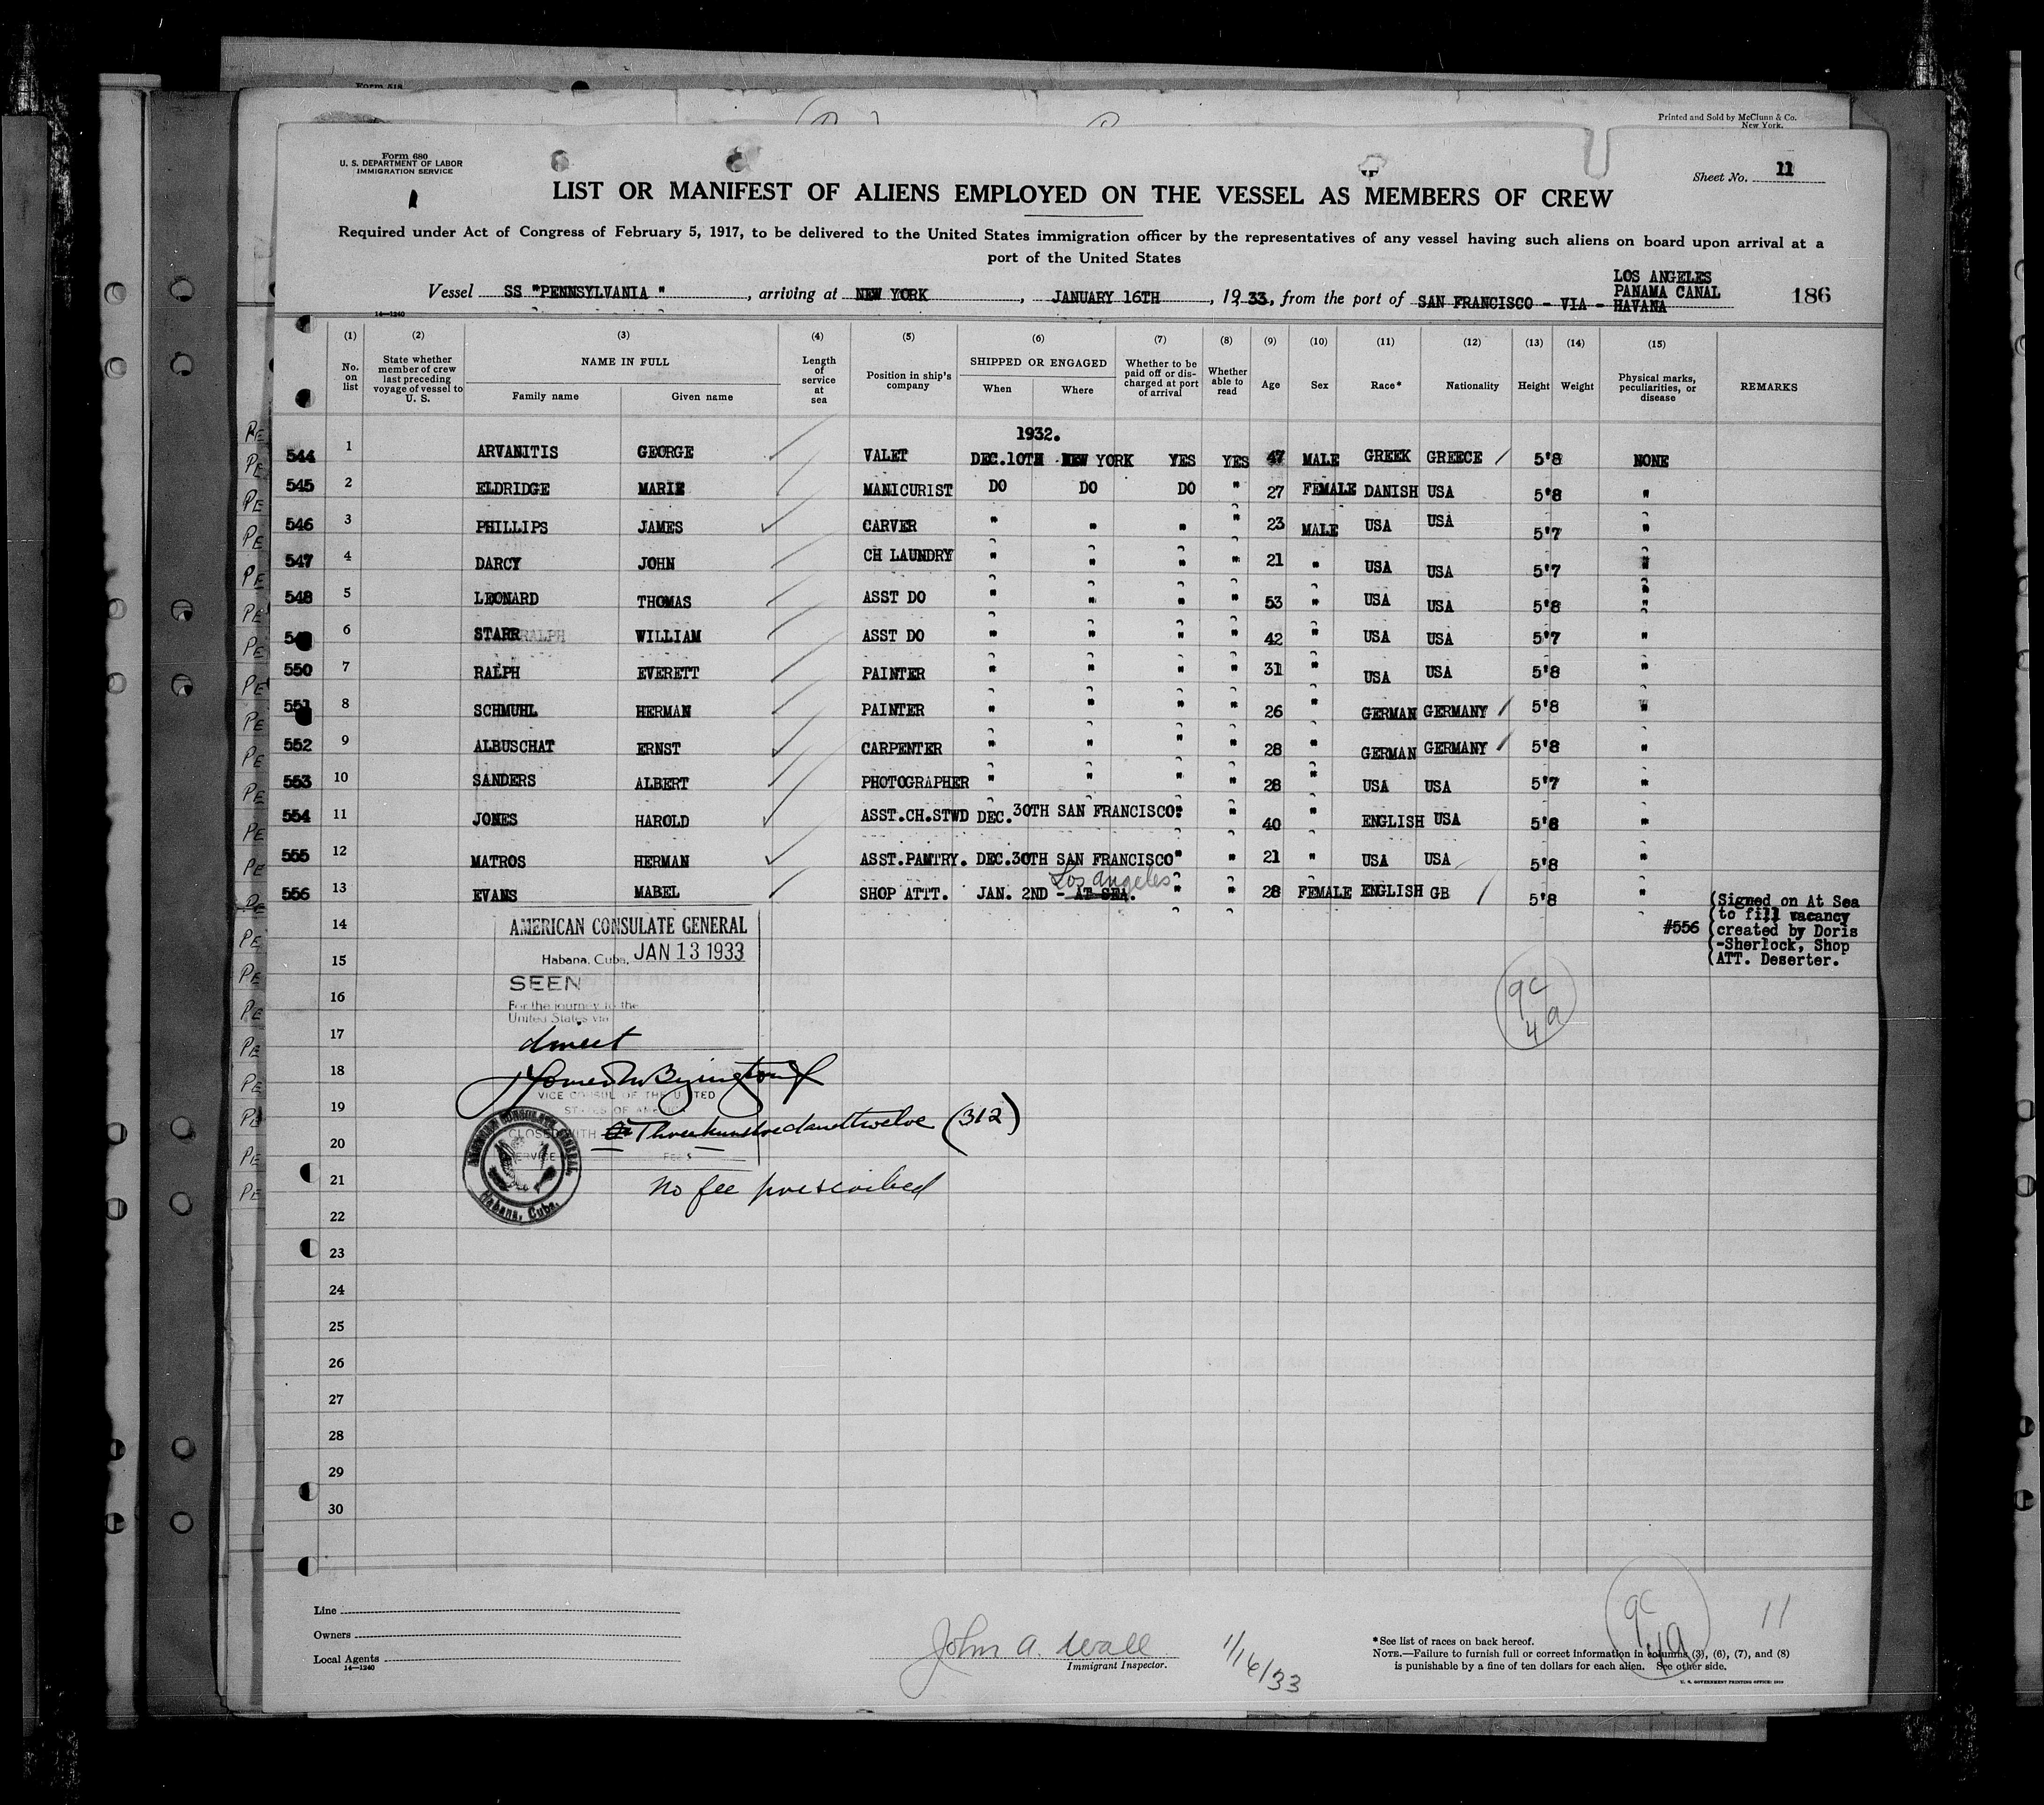 Form 618
Printed and Sold by McClunn & Co.
New York.
Form 680
U. S. DEPARTMENT OF LABOR
IMMIGRATION SERVICE
Sheet No. 11
LIST OR MANIFEST OF ALIENS EMPLOYED ON THE VESSEL AS MEMBERS OF CREW
Required under Act of Congress of February 5, 1917, to be delivered to the United States immigration officer by the representatives of any vessel having such aliens on board upon arrival at a
port of the United States
Vessel SS "PENNSYLVANIA", arriving at NEW YORK, JANUARY 16TH, 1933, from the port of SAN FRANCISCO - VIA - LOS ANGELES PANAMA CANAL HAVANA
186
14-1240
(1) (2) (3) (4) (5) (6) (7) (8) (9) (10) (11) (12) (13) (14) (15)
No. on list State whether member of crew last preceding voyage of vessel to U. S. NAME IN FULL Family name Given name Length of service at sea Position in ship's company SHIPPED OR ENGAGED When Where Whether to be paid off or discharged at port of arrival Whether able to read Age Sex Race* Nationality Height Weight Physical marks, peculiarities, or disease REMARKS
1932.
544 1 ARVANITIS GEORGE VALET DEC.10TH NEW YORK YES YES 47 MALE GREEK GREECE 5'8 NONE
545 2 ELDRIDGE MARIE MANICURIST DO DO DO " 27 FEMALE DANISH USA 5'8 "
546 3 PHILLIPS JAMES CARVER " " " " 23 MALE USA USA 5'7 "
547 4 DARCY JOHN CH LAUNDRY " " " " 21 " USA USA 5'7 "
548 5 LEONARD THOMAS ASST DO " " " " 53 " USA USA 5'8 "
54 6 STARR RALPH WILLIAM ASST DO " " " " 42 " USA USA 5'7 "
550 7 RALPH EVERETT PAINTER " " " " 31 " USA USA 5'8 "
551 8 SCHMUHL HERMAN PAINTER " " " " 26 " GERMAN GERMANY 5'8 "
552 9 ALBUSCHAT ERNST CARPENTER " " " " 28 " GERMAN GERMANY 5'8 "
553 10 SANDERS ALBERT PHOTOGRAPHER " " " " 28 " USA USA 5'7 "
554 11 JONES HAROLD ASST.CH.STWD DEC.30TH SAN FRANCISCO " " 40 " ENGLISH USA 5'8 "
555 12 MATROS HERMAN ASST.PANTRY. DEC.30TH SAN FRANCISCO " " 21 " USA USA 5'8 "
Los Angeles
556 13 EVANS MABEL SHOP ATTT. JAN. 2ND - AT SEA. " " 28 FEMALE ENGLISH GB 5'8 "
#556 (Signed on At Sea
(to fill vacancy
(created by Doris
(-Sherlock, Shop
(ATT. Deserter.
14
15
16
17
18
19
20
21
22
23
24
25
26
27
28
29
30
AMERICAN CONSULATE GENERAL
Habana, Cuba, JAN 13 1933
SEEN
For the journey to the
United States via
direct
Homer M Byington Jr
VICE CONSUL OF THE UNITED
STATES OF AMERICA
CLOSED WITH Three hundred and twelve (312)
SERVICE FEES
No fee prescribed
AMERICAN CONSULATE GENERAL
Habana, Cuba.
9C
4a
Line
Owners
Local Agents
14-1240
John A. Wall
Immigrant Inspector.
1/16/33
9C
4a
11
*See list of races on back hereof.
NOTE.—Failure to furnish full or correct information in columns (3), (6), (7), and (8)
is punishable by a fine of ten dollars for each alien. See other side.